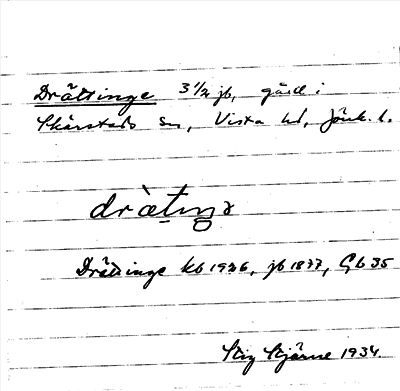 Drättinge 3 1/2 jb, gård i
Skärstads sn, Vista hd, Jönk. l.
dràtıŋə
Drättinge kb 1926, jb 1877, Gb 35
Stig Stjärne 1934.